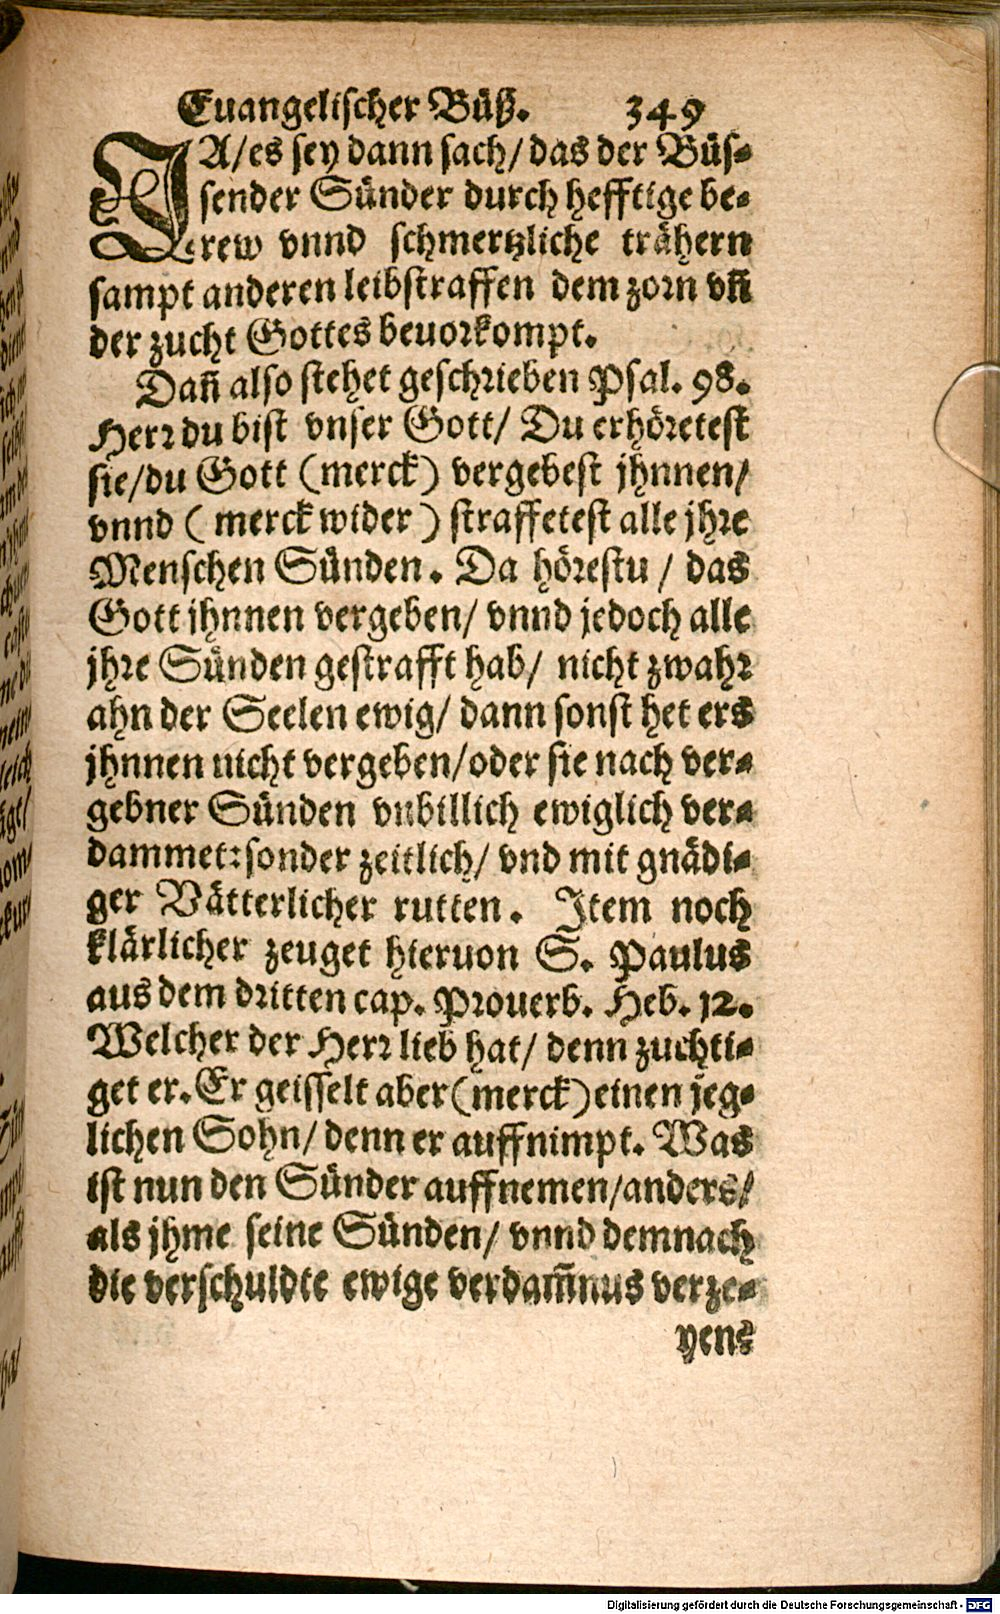 Euangelischer Büß. 349
JA/es sey dann sach/ das der Büs-
sender Sünder durch hefftige be-
rew vnnd schmertzliche trähern
sampt anderen leibstraffen dem zorn vn̄
der zucht Gottes beuorkompt.
Dan̄ also stehet geschrieben Psal. 98.
Herr du bist vnser Gott/ Du erhöretest
sie/du Gott (merck) vergebest jhnnen/
vnnd ( merck wider ) straffetest alle jhre
Menschen Sünden. Da hörestu / das
Gott jhnnen vergeben/ vnnd jedoch alle
jhre Sünden gestrafft hab/ nicht zwahr
ahn der Seelen ewig/ dann sonst het ers
jhnnen nicht vergeben/oder sie nach ver-
gebner Sünden vnbillich ewiglich ver-
dammet:sonder zeitlich/ vnd mit gnädi-
ger Vätterlicher rutten. Item noch
klärlicher zeuget hieruon S. Paulus
aus dem dritten cap. Prouerb. Heb. 12.
Welcher der Herr lieb hat/ denn zuchti-
get er. Er geisselt aber(merck)einen jeg-
lichen Sohn/ denn er auffnimpt. Was
ist nun den Sünder auffnemen/anders/
als jhme seine Sünden/ vnnd demnach
die verschuldte ewige verdam̄nus verze-
yens
Digitalisierung gefördert durch die Deutsche Forschungsgemeinschaft - DFG